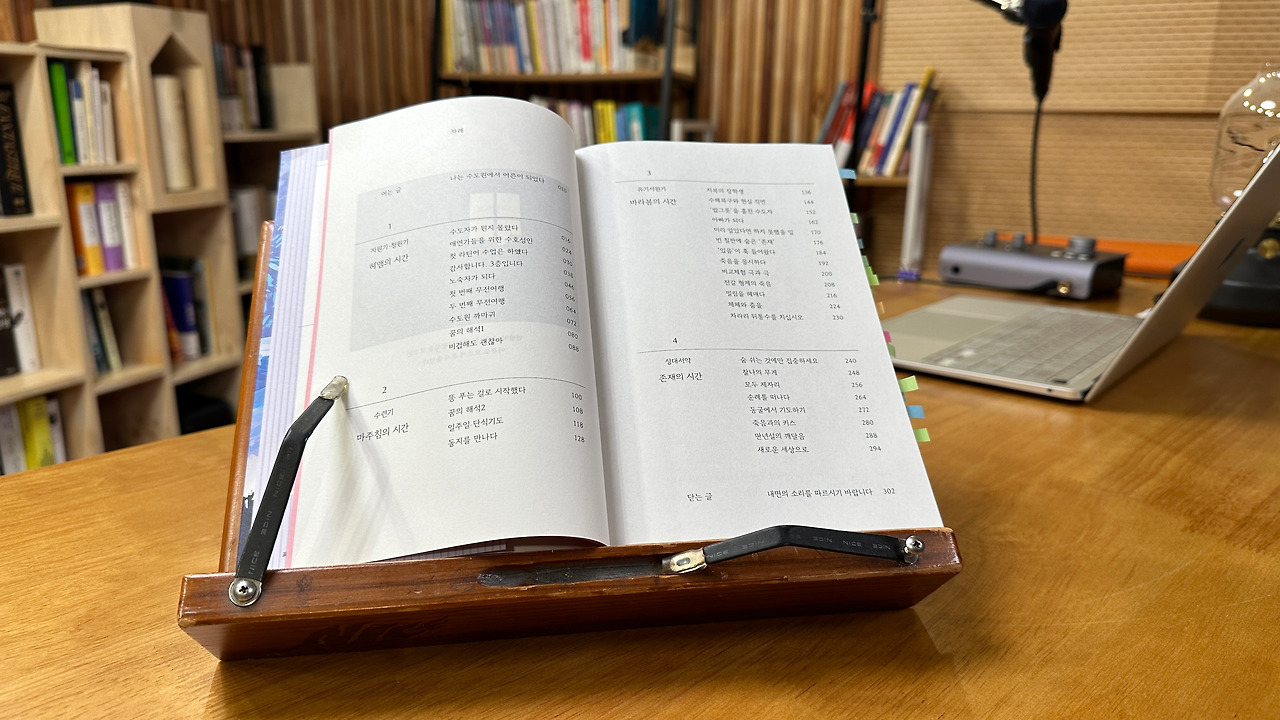 차례
여는 글 나는 수도원에서 어른이 되었다 010
1
지원기·청원기
헤맴의 시간
수도자가 된지 몰랐다 016
애연가들을 위한 수호성인 024
첫 라틴어 수업은 하였다 032
감사합니다. 3층입니다 038
노숙자가 되다 046
첫 번째 무전여행 056
두 번째 무전여행 064
수도원 까마귀 072
꿈의 해석1 080
비겁해도 괜찮아 088
2
수련기
마주침의 시간
똥 푸는 걸로 시작했다 100
꿈의 해석2 108
일주일 단식기도 118
동지를 만나다 128
3
유기서원기
바라봄의 시간
지복의 정학생 136
수해복구와 현실 직면 144
'밥그릇'을 훔친 수도자 152
아빠가 되다 162
미리 알았다면 하지 못했을 일 170
빈 침란에 숨은 '존재' 176
'있음'이 훅 들어왔다 184
죽음을 응시하다 192
비교체험 극과 극 200
전갈 형제의 죽음 208
밀림을 헤매다 216
제제와 춤을 224
차라리 뒤통수를 치십시오 230
4
성대서약
존재의 시간
숨 쉬는 것에만 집중하세요 240
찰나의 무게 248
모두 제자리 256
순례를 떠나다 264
동굴에서 기도하기 272
죽음과의 키스 280
만년설의 깨달음 288
새로운 세상으로 294
닫는 글 내면의 소리를 따르시기 바랍니다 302